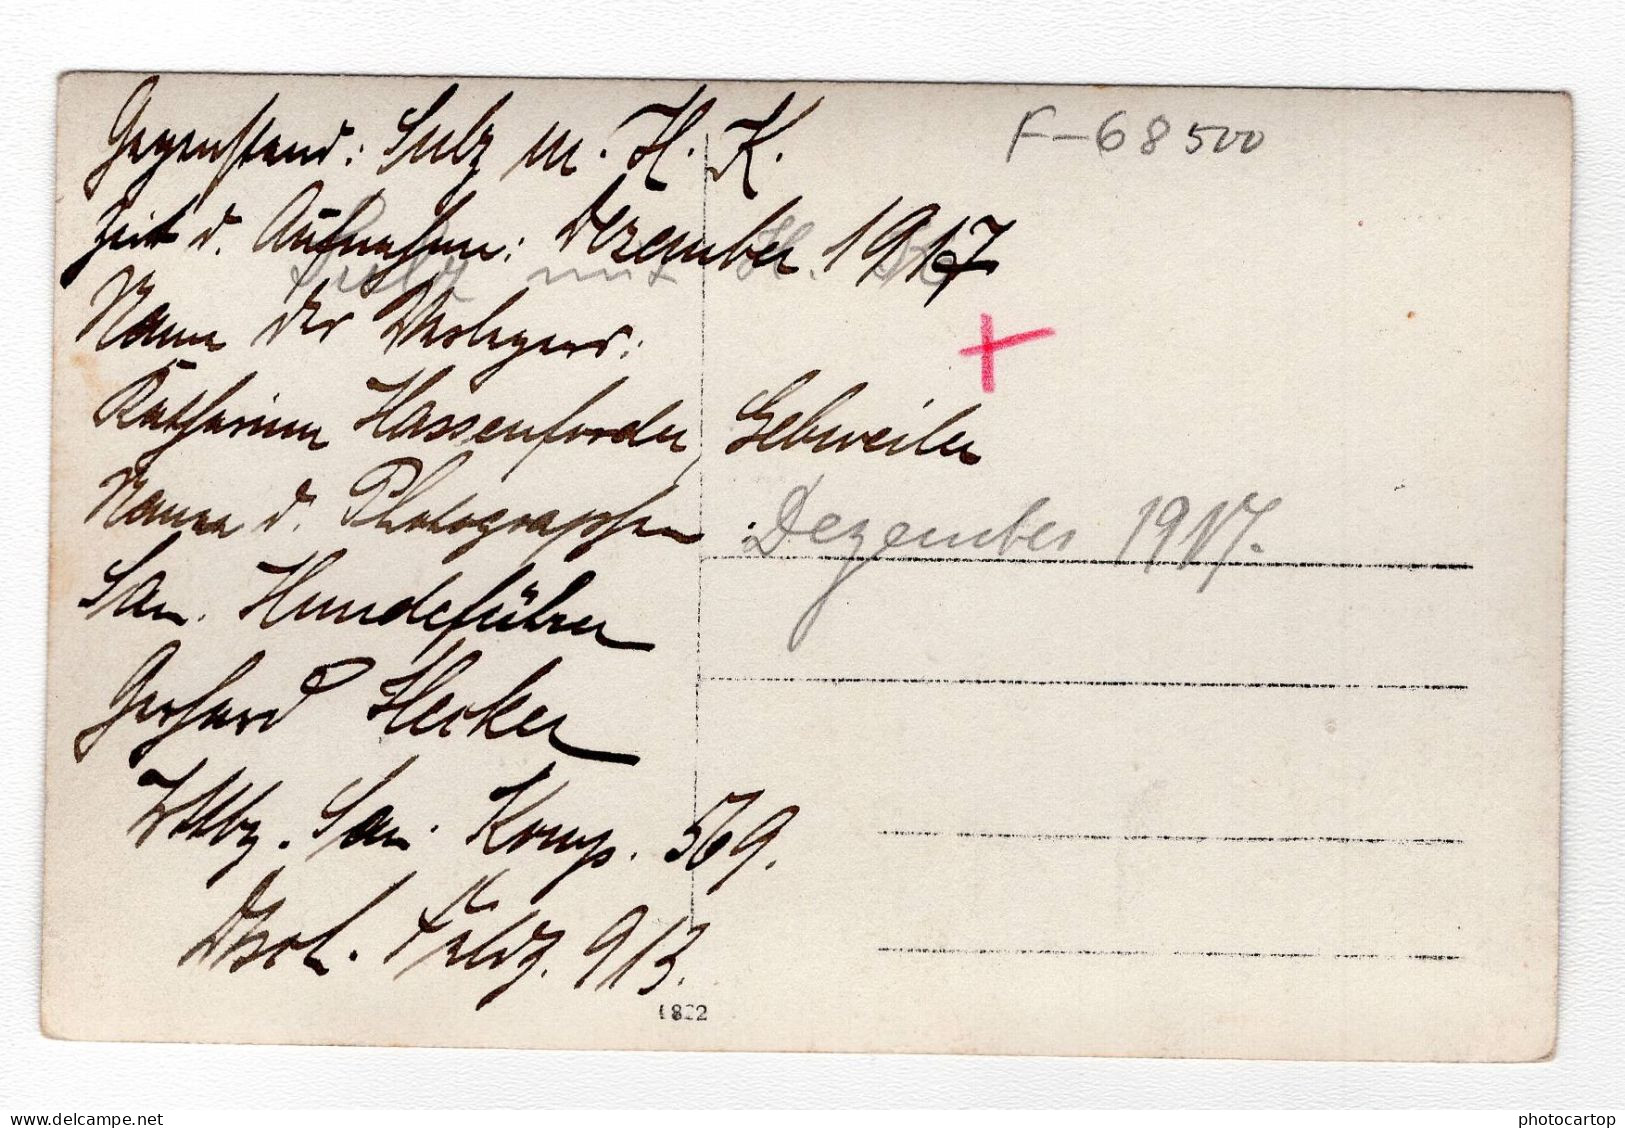 F-68500
Gegenstand: Sulz m. H. K.
Zeit d. Aufnahme: Dezember 1917
Sulz mit H. K.
Name des Verlegers:
Katharina Hassenforder, Gebweiler
Name d. Photographen
Dezember 1917.
San. Hundeführer
Gerhard Hecker
Wttbg. San. Komp. 569.
Dtsch. Feldp. 913.
1822
www.delcampe.net
photocartop